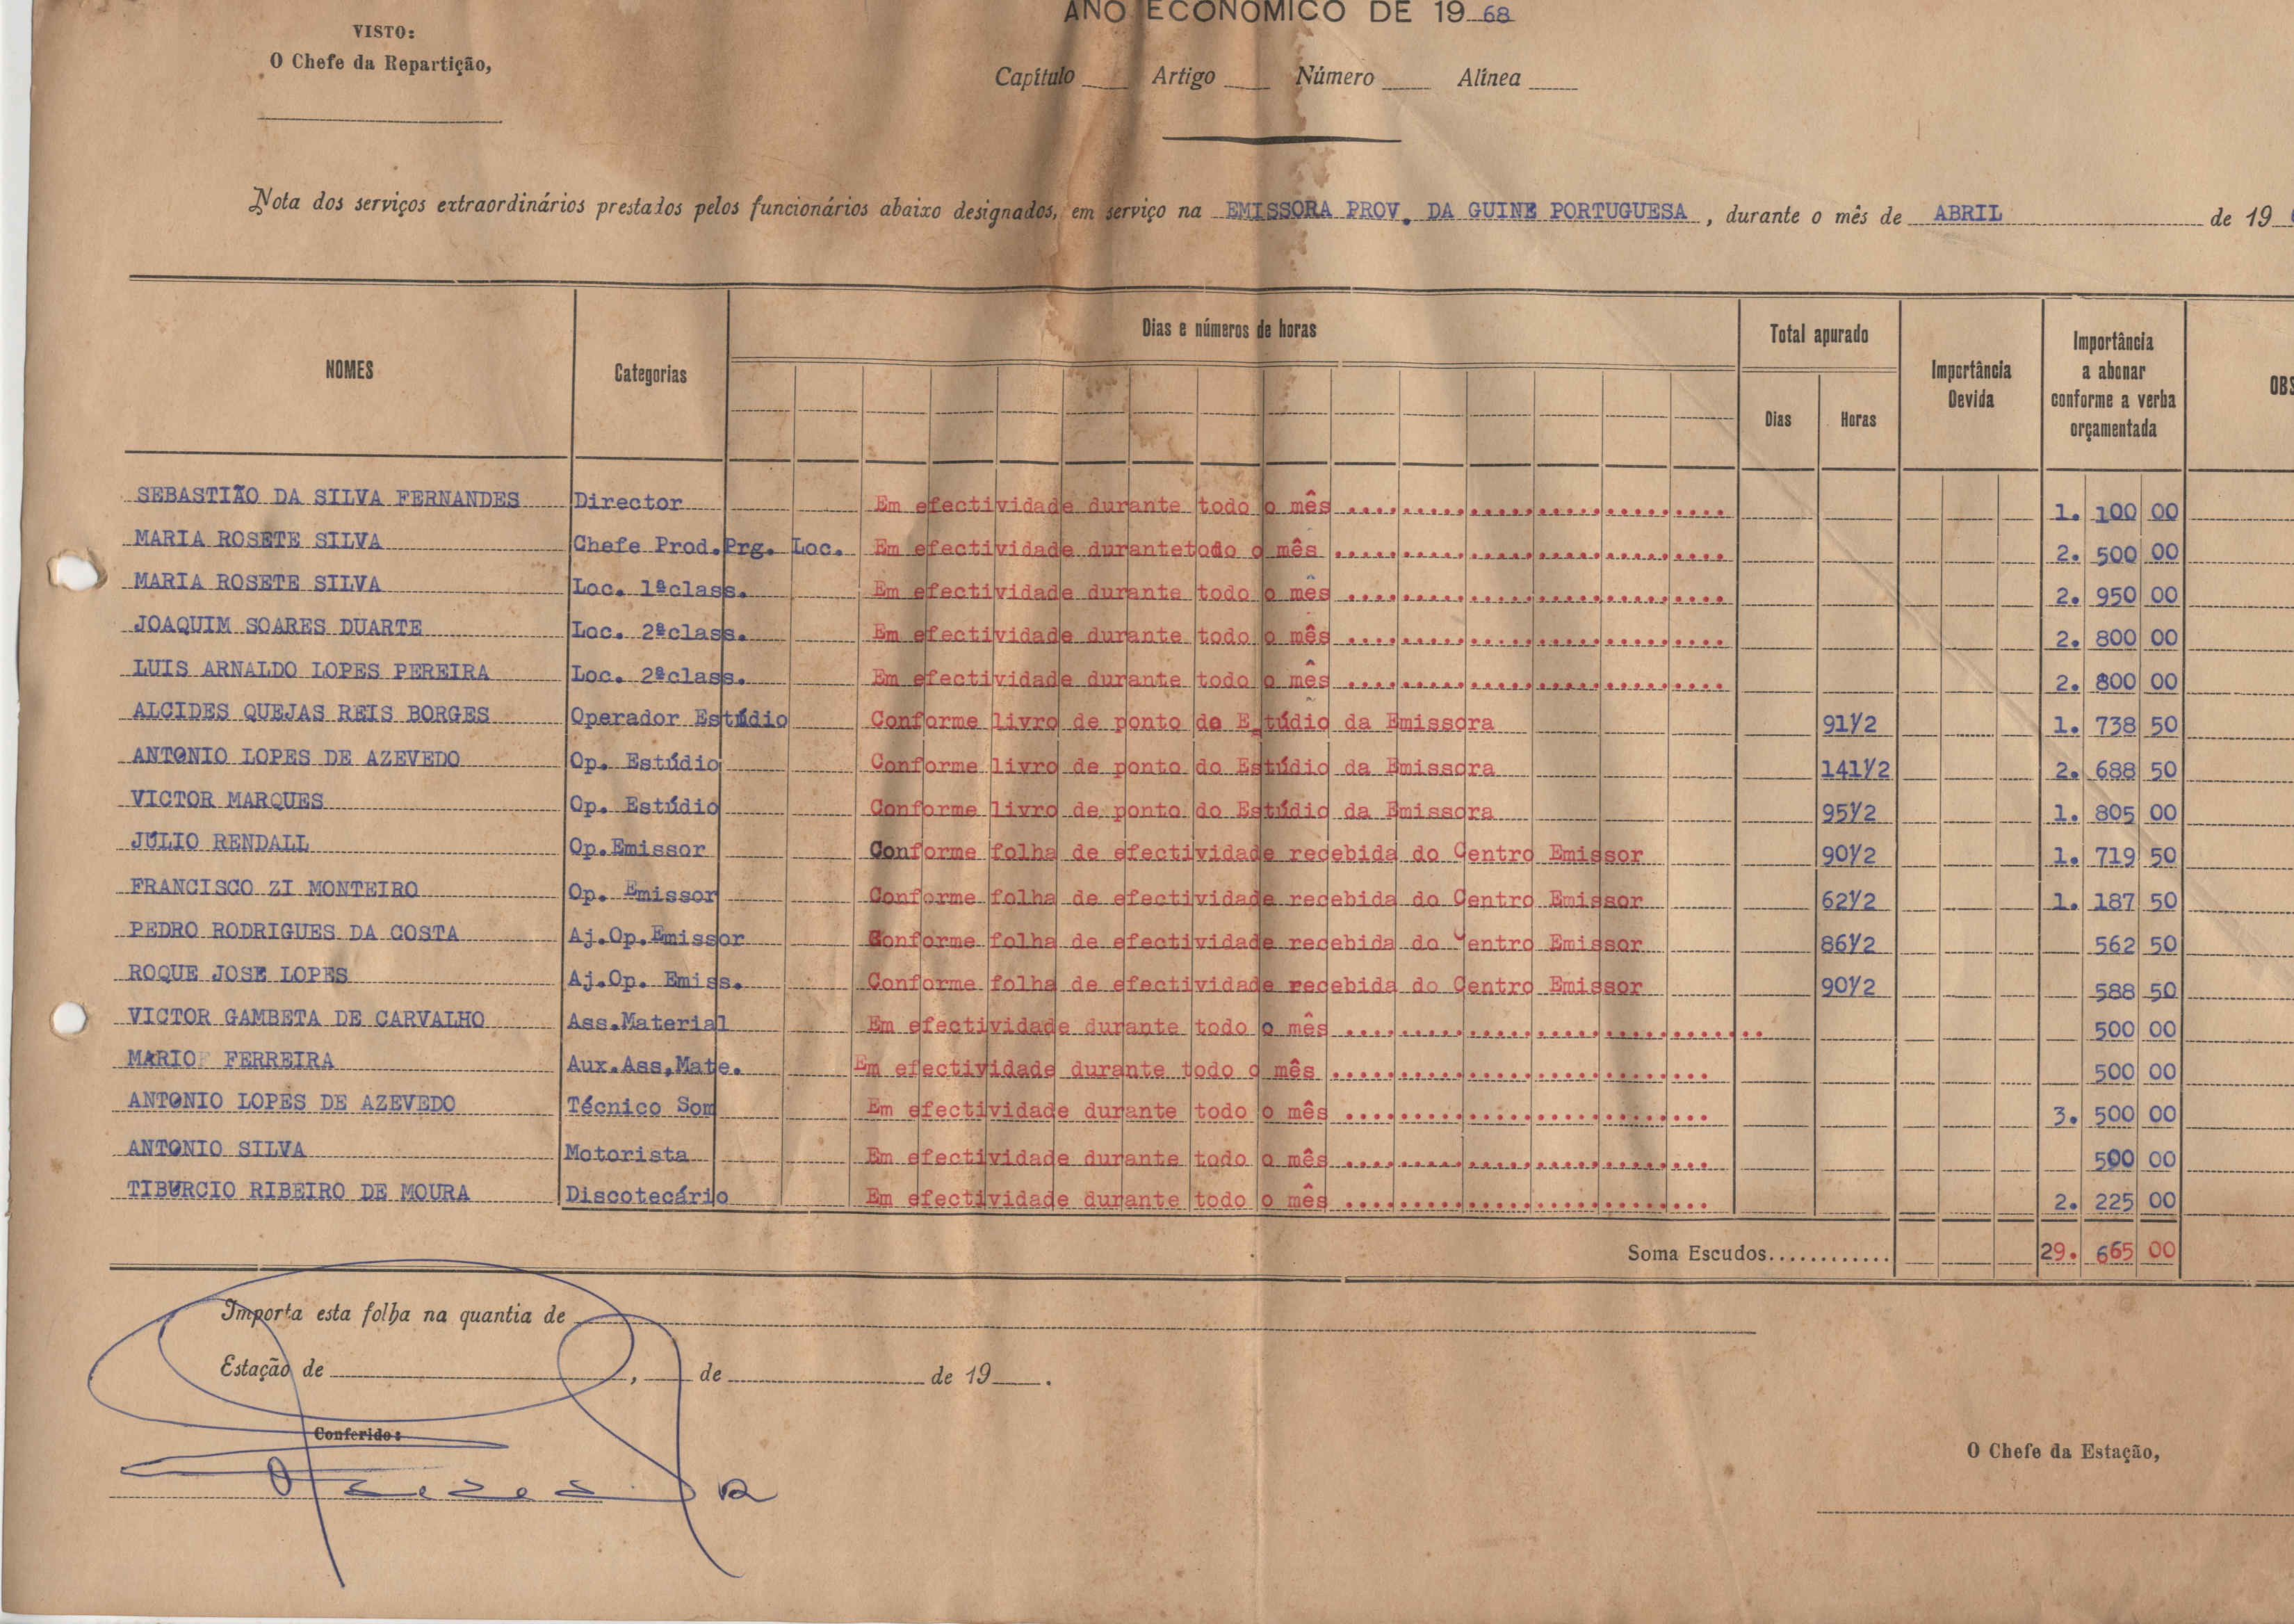 ANO ECONÓMICO DE 19 68
VISTO:
O Chefe da Repartição,
Capítulo Artigo Número Alínea
Nota dos serviços extraordinários prestados pelos funcionários abaixo designados, em serviço na EMISSORA PROV. DA GUINE PORTUGUESA, durante o mês de ABRIL de 19
NOMES Categorias Dias e números de horas Total apurado Dias Horas Importância Devida Importância a abonar conforme a verba orçamentada OBS
SEBASTIÃO DA SILVA FERNANDES Director Em efectividade durante todo o mês ............................ 1. 100 00
MARIA ROSETE SILVA Chefe Prod.Prg. Loc. Em efectividade durantetodo o mês ............................. 2. 500 00
MARIA ROSETE SILVA Loc. 1ªclass. Em efectividade durante todo o mês ............................ 2. 950 00
JOAQUIM SOARES DUARTE Loc. 2ªclass. Em efectividade durante todo o mês ............................ 2. 800 00
LUIS ARNALDO LOPES PEREIRA Loc. 2ªclass. Em efectividade durante todo o mês ............................ 2. 800 00
ALCIDES QUEJAS REIS BORGES Operador Estúdio Conforme livro de ponto do Estúdio da Emissora 91½ 1. 738 50
ANTONIO LOPES DE AZEVEDO Op. Estúdio Conforme livro de ponto do Estúdio da Emissora 141½ 2. 688 50
VICTOR MARQUES Op. Estúdio Conforme livro de ponto do Estúdio da Emissora 95½ 1. 805 00
JULIO RENDALL Op.Emissor Conforme folha de efectividade recebida do Centro Emissor 90½ 1. 719 50
FRANCISCO ZI MONTEIRO Op. Emissor Conforme folha de efectividade recebida do Centro Emissor 62½ 1. 187 50
PEDRO RODRIGUES DA COSTA Aj.Op.Emissor Conforme folha de efectividade recebida do Centro Emissor 86½ 562 50
ROQUE JOSE LOPES Aj.Op. Emiss. Conforme folha de efectividade recebida do Centro Emissor 90½ 588 50
VICTOR GAMBETA DE CARVALHO Ass.Material Em efectividade durante todo o mês ............................... 500 00
MARIO FERREIRA Aux.Ass,Mate. Em efectividade durante todo o mês ............................ 500 00
ANTONIO LOPES DE AZEVEDO Técnico Som Em efectividade durante todo o mês ........................... 3. 500 00
ANTONIO SILVA Motorista Em efectividade durante todo o mês ........................... 500 00
TIBURCIO RIBEIRO DE MOURA Discotecário Em efectividade durante todo o mês ........................... 2. 225 00
Soma Escudos............ 29. 665 00
Importa esta folha na quantia de
Estação de , de de 19 .
Conferido:
O Chefe da Estação,